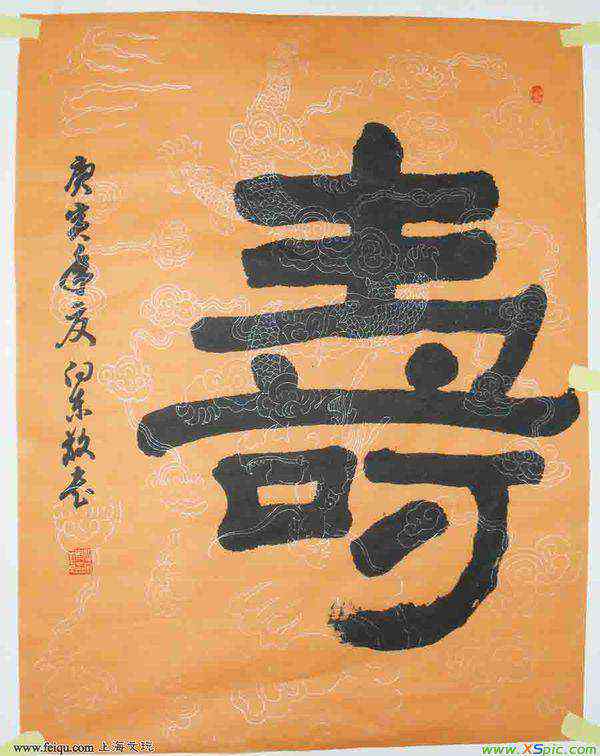 壽
庚寅年夏向东敬書
www.feiqu.com 上海文玩
www.XSpic.com